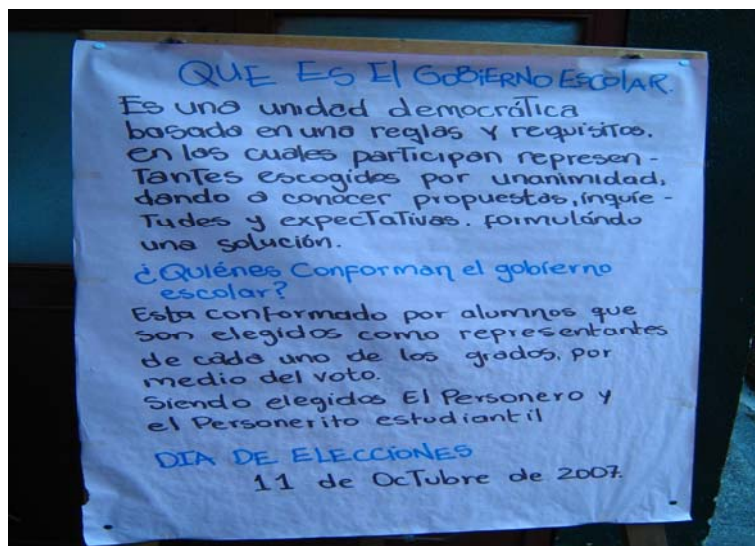 QUE ES El GOBIERNO ESCOLAR.
Es una unidad democrática
basada en una reglas y requisitos.
en las cuales participan represen-
Tantes escogidos por unanimidad,
dando a conocer propuestas, inquie-
Tudes y expecTaTivas. formulándo
una solución.
¿Quiénes Conforman el gobierno
escolar?
Esta conformado por alumnos que
son elegidos como representantes
de cada uno de los grados, por
medio del voto.
Siendo elegidos El Personero y
el Personerito estudiantil
DIA DE ELECCIONES
11 de OcTubre de 2007.